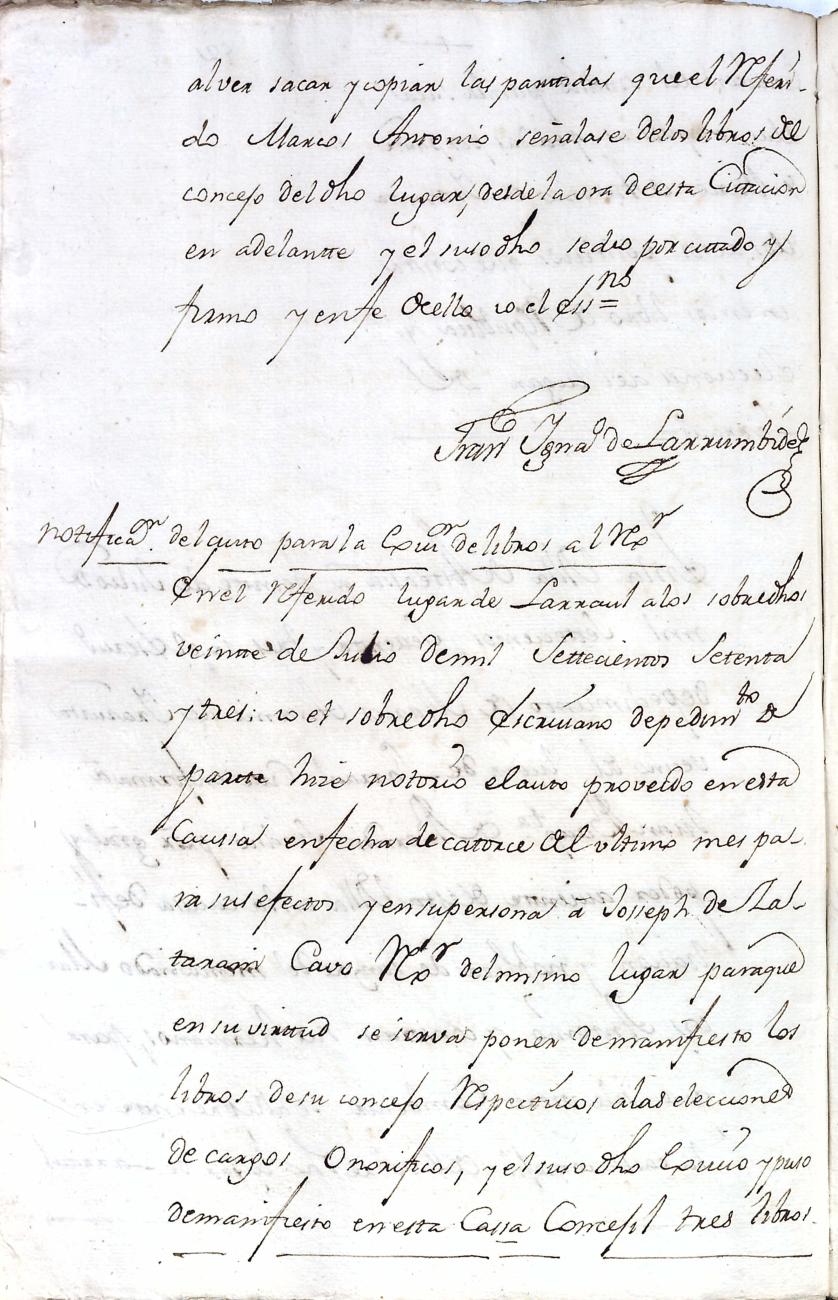 alver sacar y copiar las partidas que el Referi-
do Marcos Antonio señalase delos libros del
concejo del dho lugar, desde la ora de esta Cittacion
en adelantte y el suso dho se dio por cittado y
firmo y enfe de ello io el essno=
Franco Ignao de Larrumbide
notificaon. del auto para la Exivon de libros al Rexr
En el Referido lugar de Larraul a los sobredhos
veintte de Julio de mil Settecientos Setenta
y tres: io el sobredho Escrivano de pedimto de
partte hize notorio el auto proveido en esta
Caussa en fecha de catorce del ultimo mes pa-
ra sus efectos y en su persona â Josseph de Za-
tarain Cavo Rexr del mismo lugar paraque
en su virttud se sirva poner de manifiesto los
libros de su concejo Respectivos a las elecciones
de cargos Onorificos, y el suso dho Exivio y puso
de manifiesto en esta Cassa Concejil tres libros.